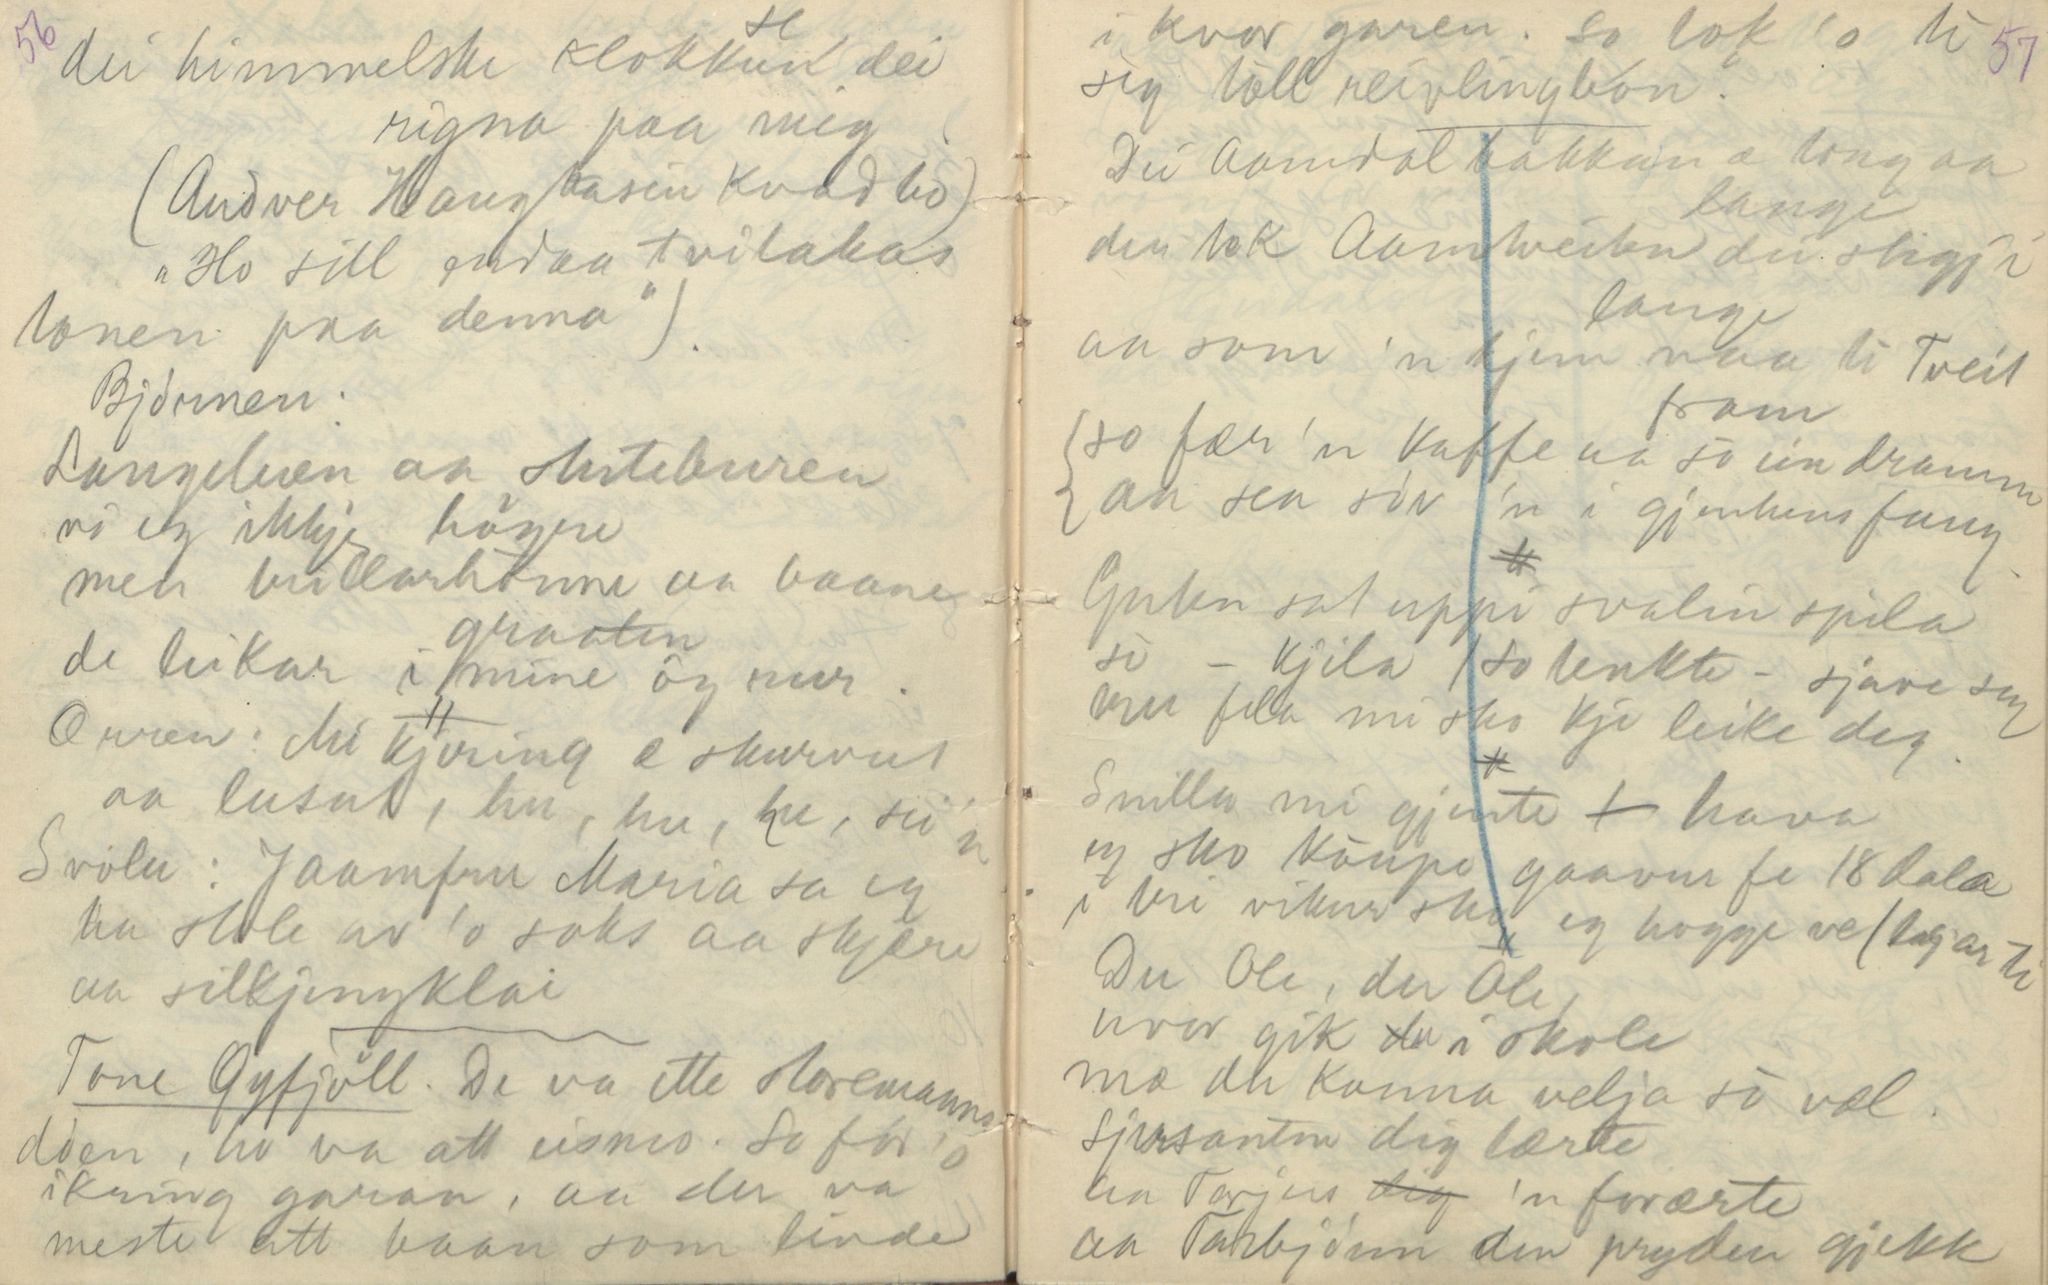 56
se
dei himmelske klokkun dei
rigna paa meg
(Andver Haugaasen kvad ho)
"Ho sill endaa tvilakas
tonen paa denna").
Bjørnen:
Langeleuen aa stuteluren
vi eg ikkje høgre
men bullarhonne aa baane
graaten
de leikar i mine öyrur.
Orren: Mi kjæring æ skurvut
aa lusut, hu, hu, hu, sei'n
Svölu: Jaamfru Maria sa eg
ha stole av 'o saks aa skjære
aa silkjenyklai
Tone Gyfjöll. De va ette storemanns
döen, ho va att eismo. So för 'o
ikring garan, aa der va
meste att baan som livde
57
i kvar garen. So tok 'o ti
sig toll reivlingbon.
Dei Aamdalbakkan æ tong aa
lange
den tok Aamtveiten dei stigj i
lange
aa som 'n kjem naa ti Tveit
fram
so fær 'n kaffe aa so ein dramm
aa sea söv 'n i gjentens fang.
Guten sat uppi svalin spila
so - kjila so tenkte - sjave seg
uru fela mi sko kje leike deg.
Snilla mi gjente + hava
eg sko köupe gaavur fe 18 dala
i tri vikur sko eg hogge ve (lagar ti
Du Ole, du Ole,
uvor gik du i skole
mæ du kunna velja so væl.
Sjursanten dig lærte
aa Tarjus dig 'n forærte
aa Tarbjönn den pryden gjekk